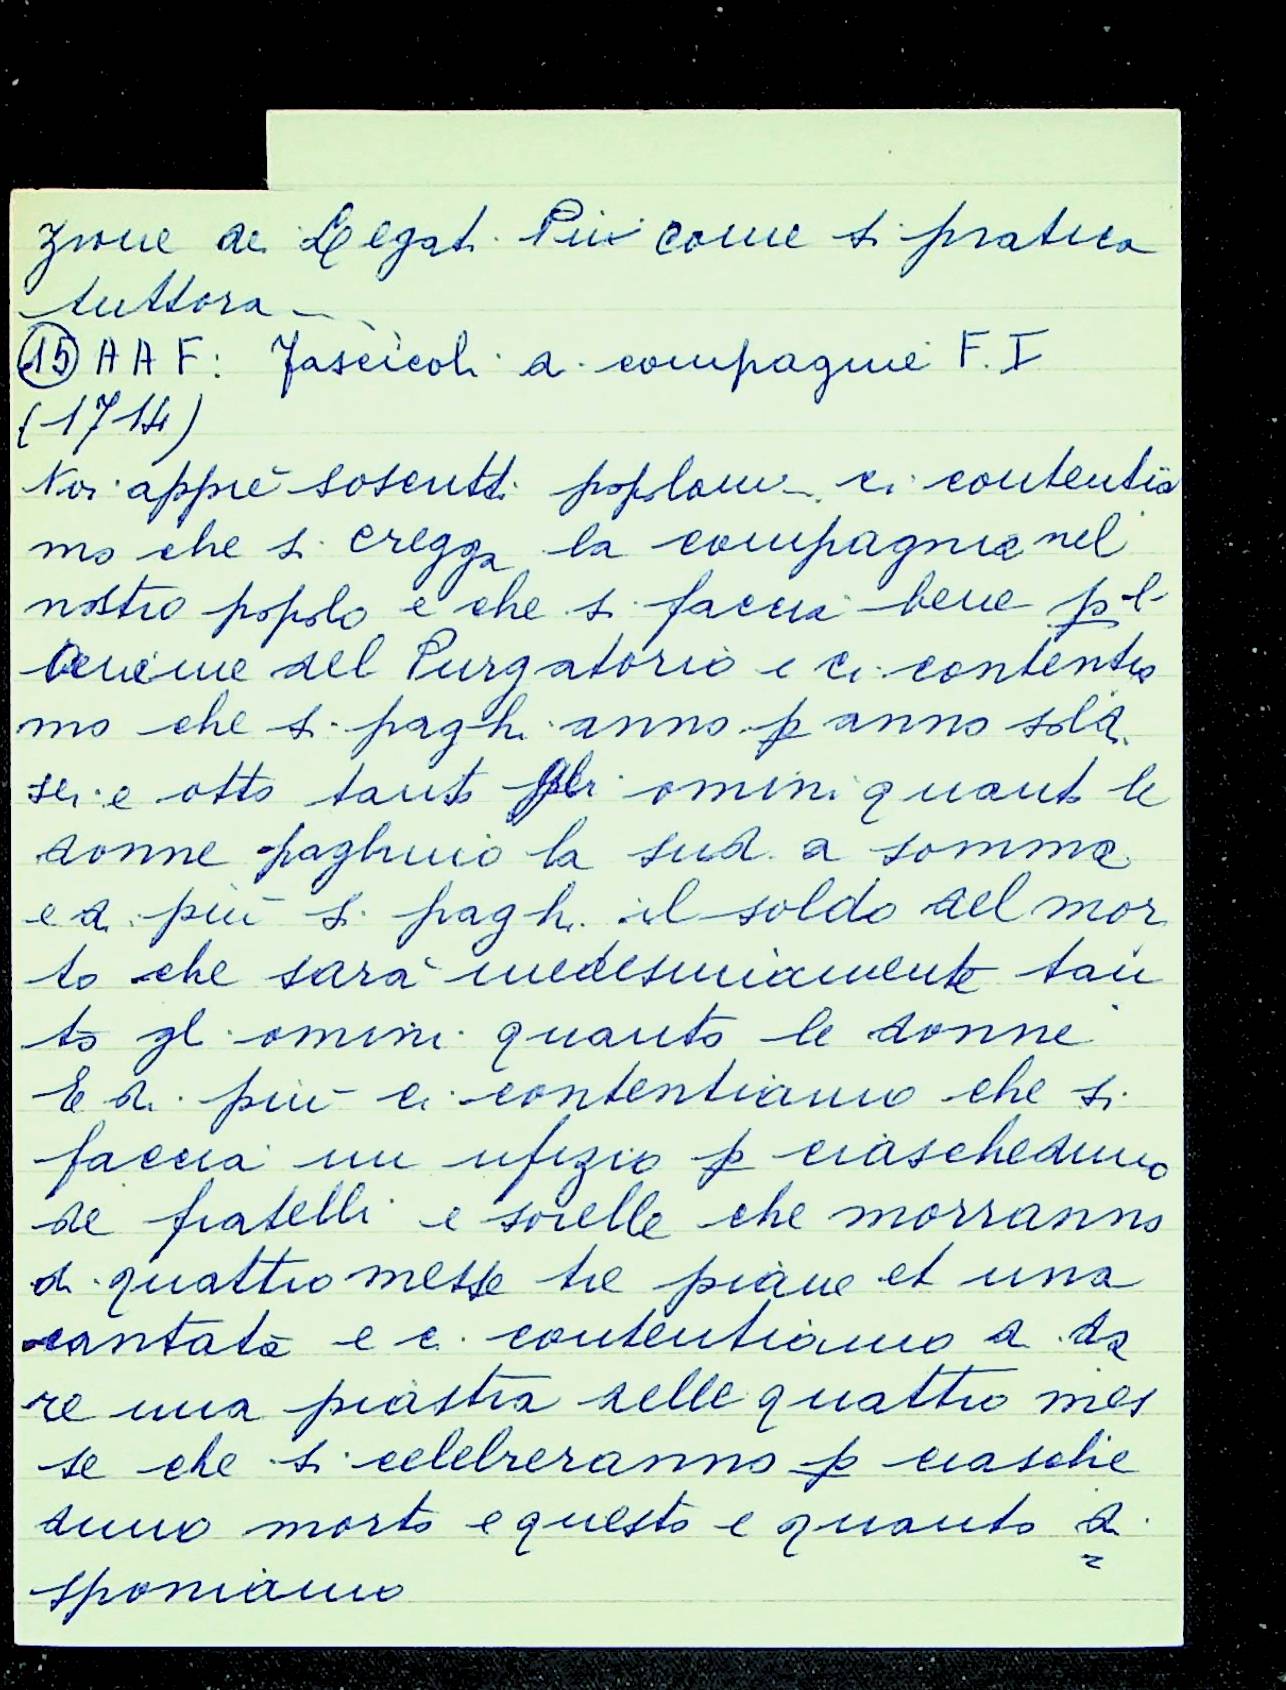 zione dei Legati Pii come si pratica
tuttora –
(15) A A F: Fascicoli di compagnie F. I
(1714)
Noi appiè soscritti popolani ci contentia
mo che si eregga la compagnia nel
nostro popolo e che si faccia bene p l'
anime del Purgatorio e ci contentia
mo che si paghi anno p anno soldi
sei e otto tanto gli omini quanto le
donne paghino la sud.a somma
e di più si paghi il soldo del mor
to che sarà medesimamente tan
to gl omini quanto le donne
E di più ci contentiamo che si
faccia un ufizio p ciascheduno
de fratelli e sorelle che morranno
di quattro messe tre piane et una
cantata e ci contentiamo di da
re una piastra delle quattro mes
se che si celebreranno p ciasche
duno morto e questo e quanto di
sponiamo